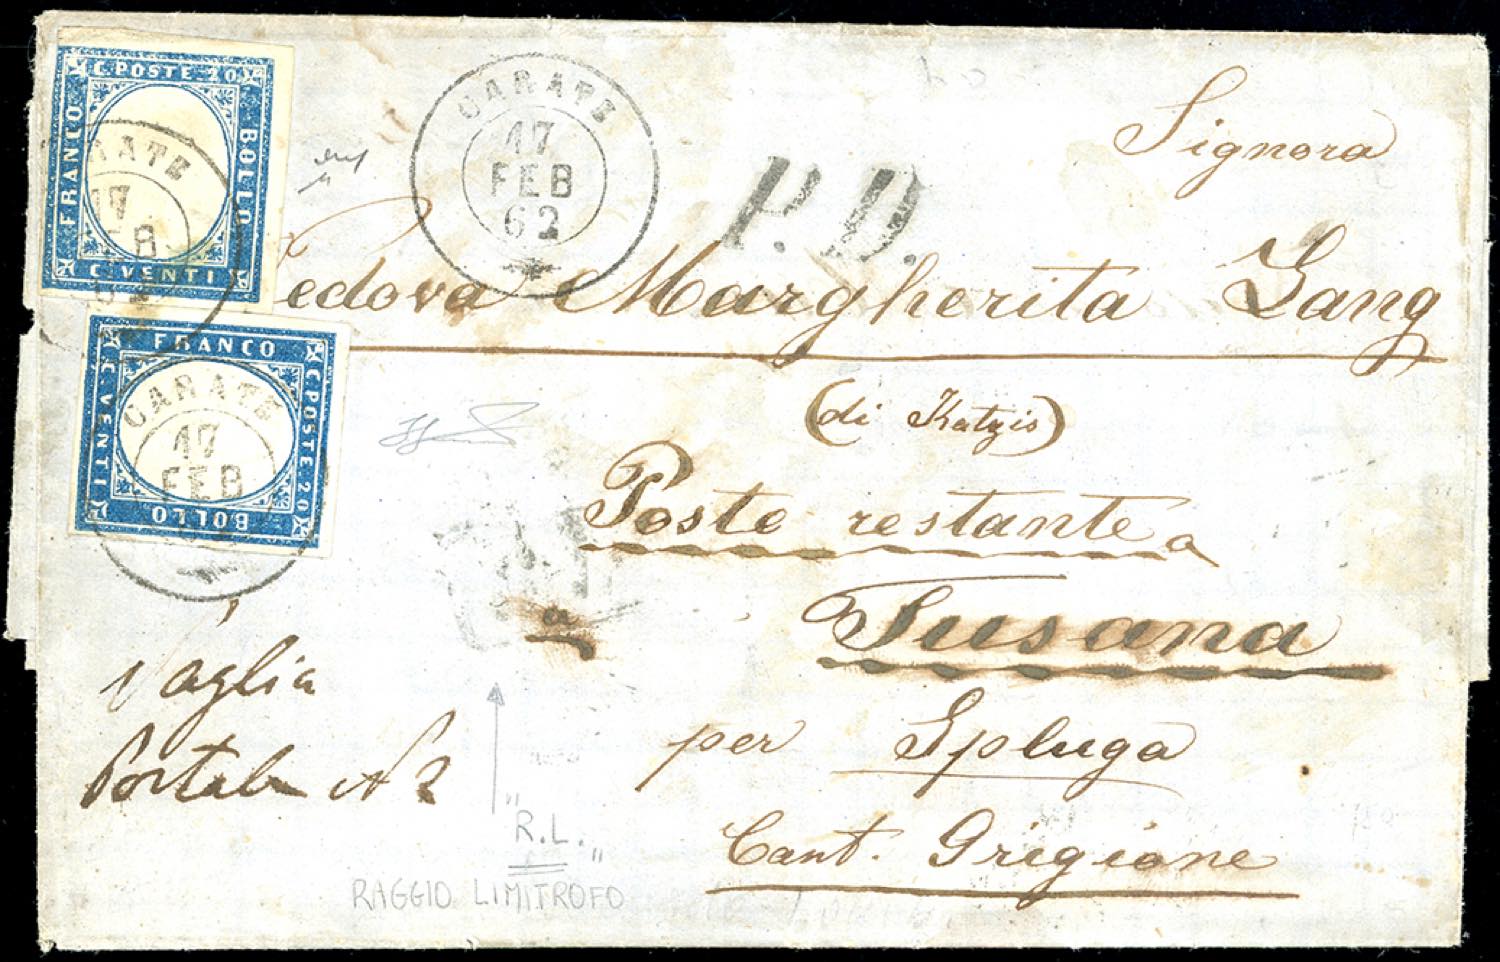 C. POSTE. 20.
FRANCO
BOLLO
C. VENTI
CARATE
17
FEB
62
P. D.
Signora
Vedova Margherita Zang
FRANCO
C. POSTE. 20
C. VENTI
BOLLO
CARATE
17
FEB
(di Katzis)
Poste restante a
a Tusana
per Spluga
Cant. Grigione
Vaglia
Postale N 2
"R.L."
RAGGIO LIMITROFO